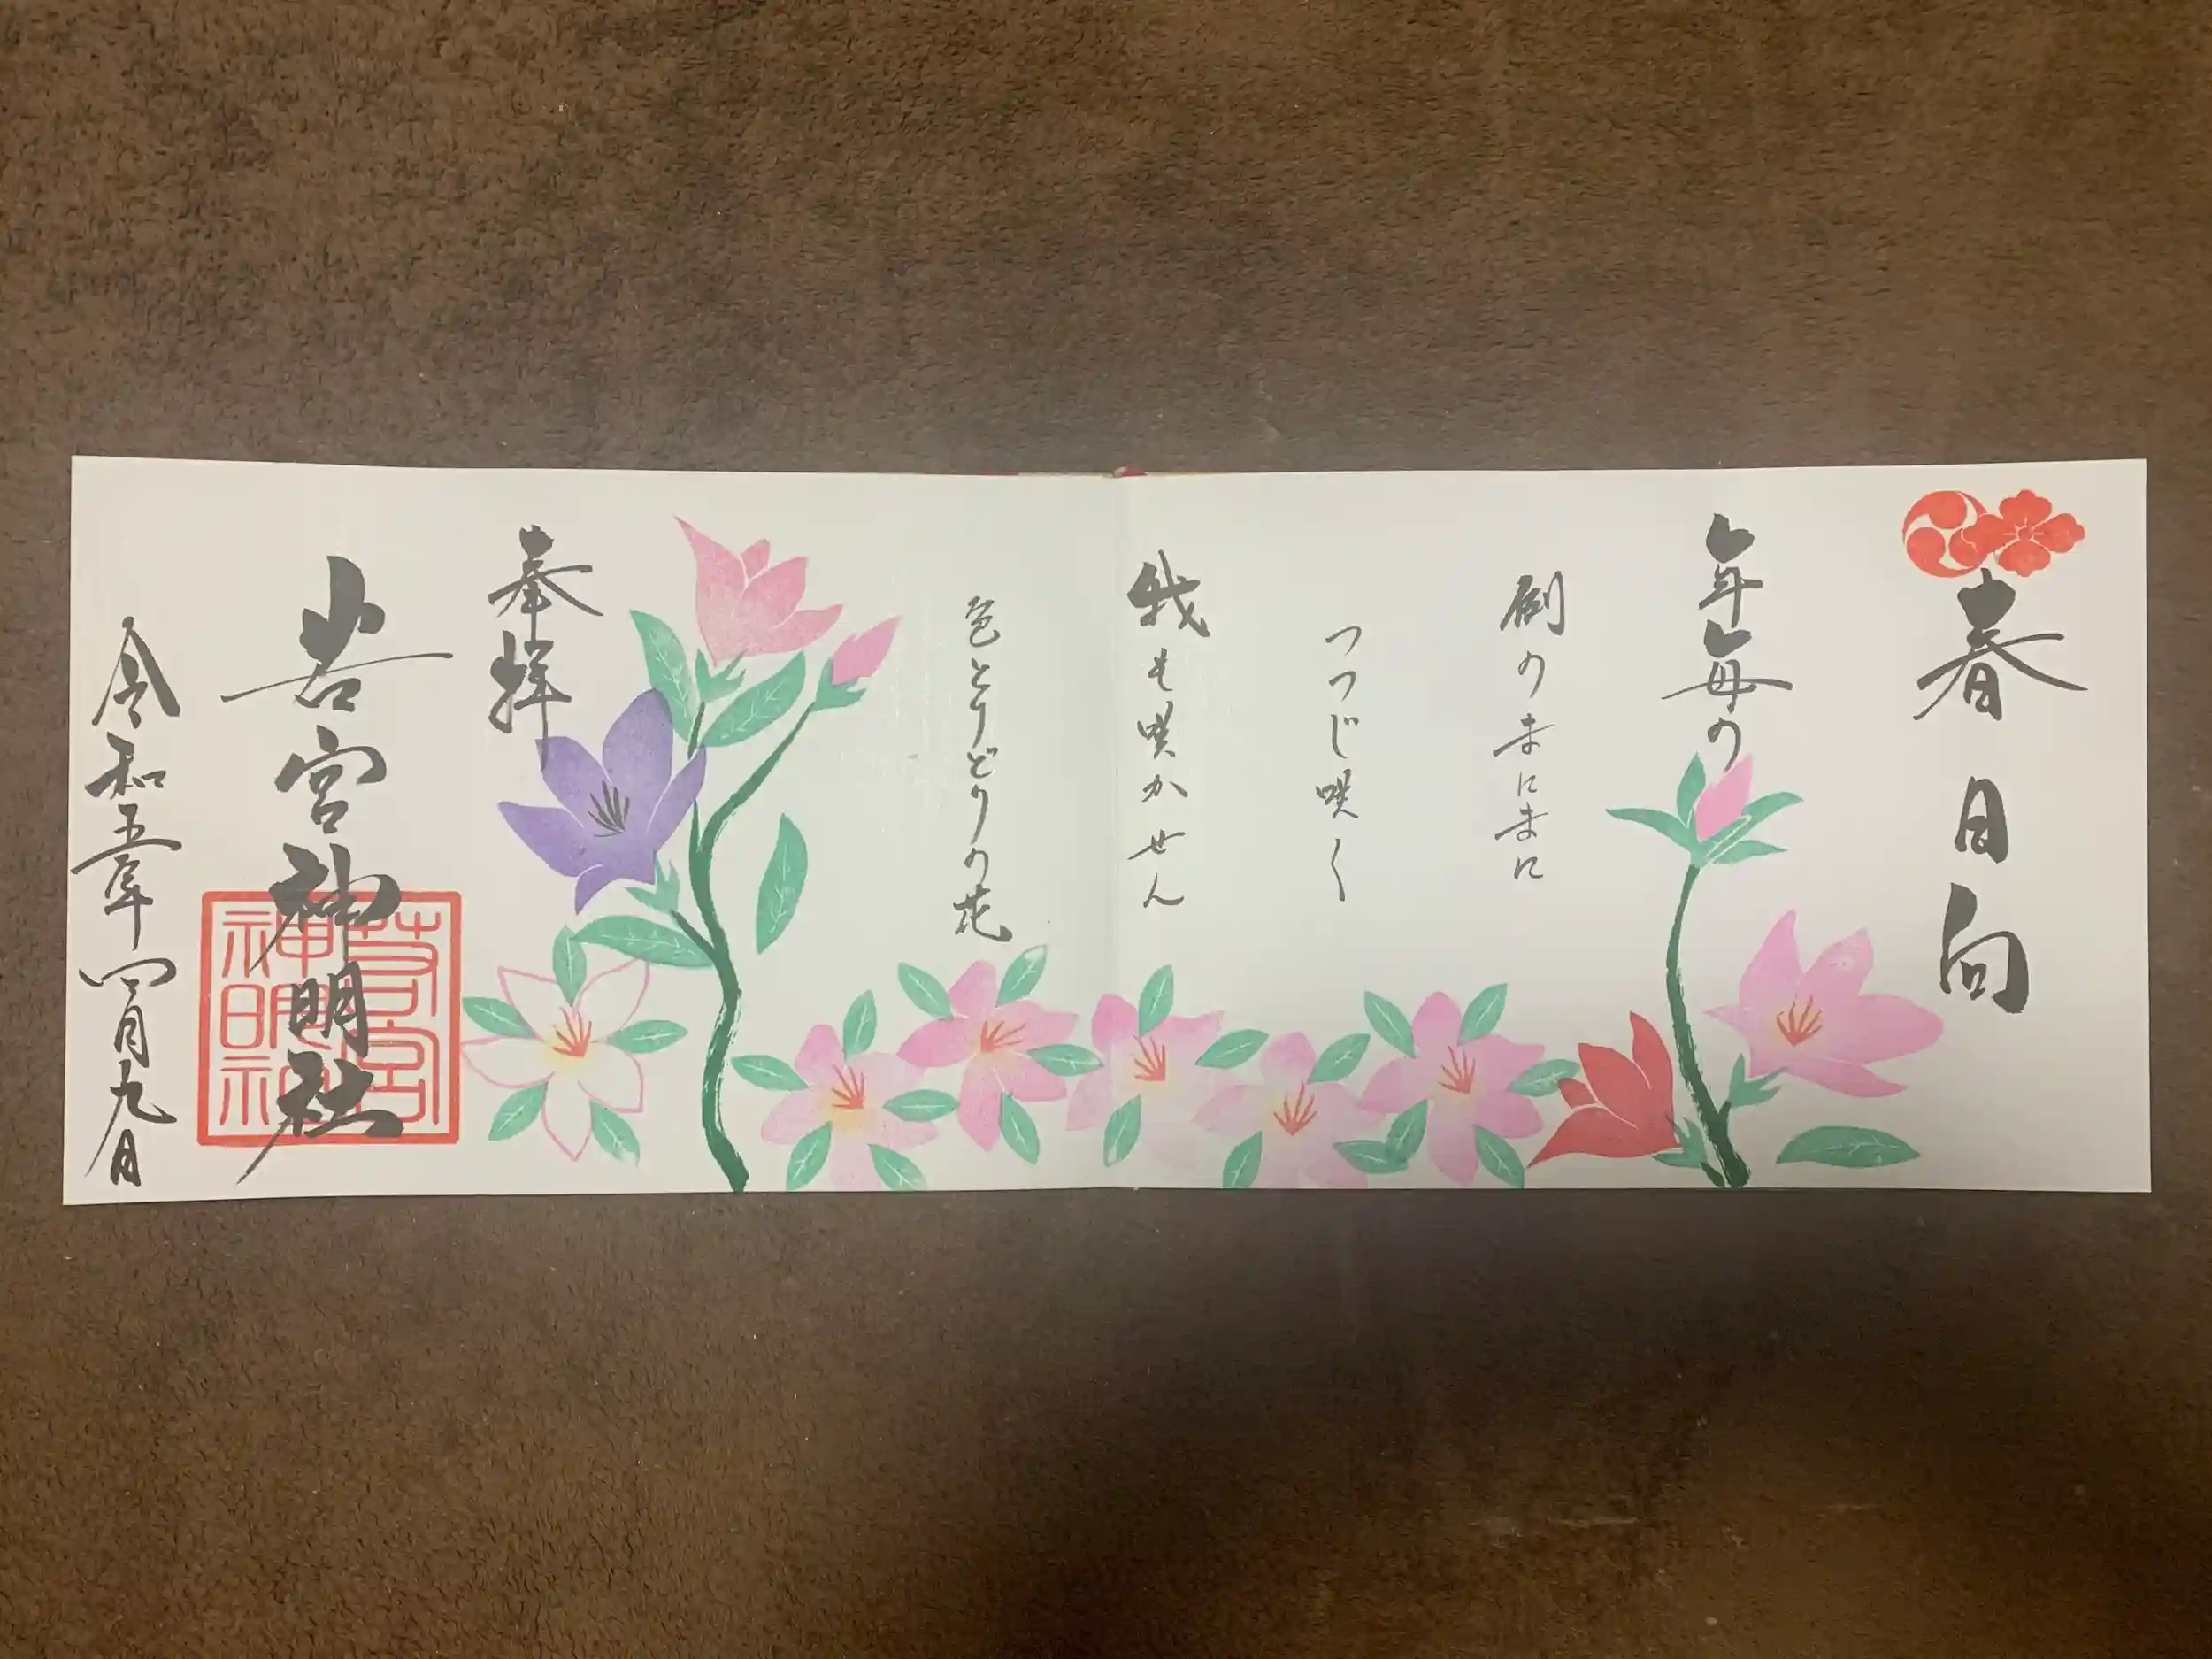 春日向
年毎の
刻のまにまに
つつじ咲く
我も咲かせん
色とりどりの花
奉拝
若宮神明社
若宮
神明社
令和五年四月九日